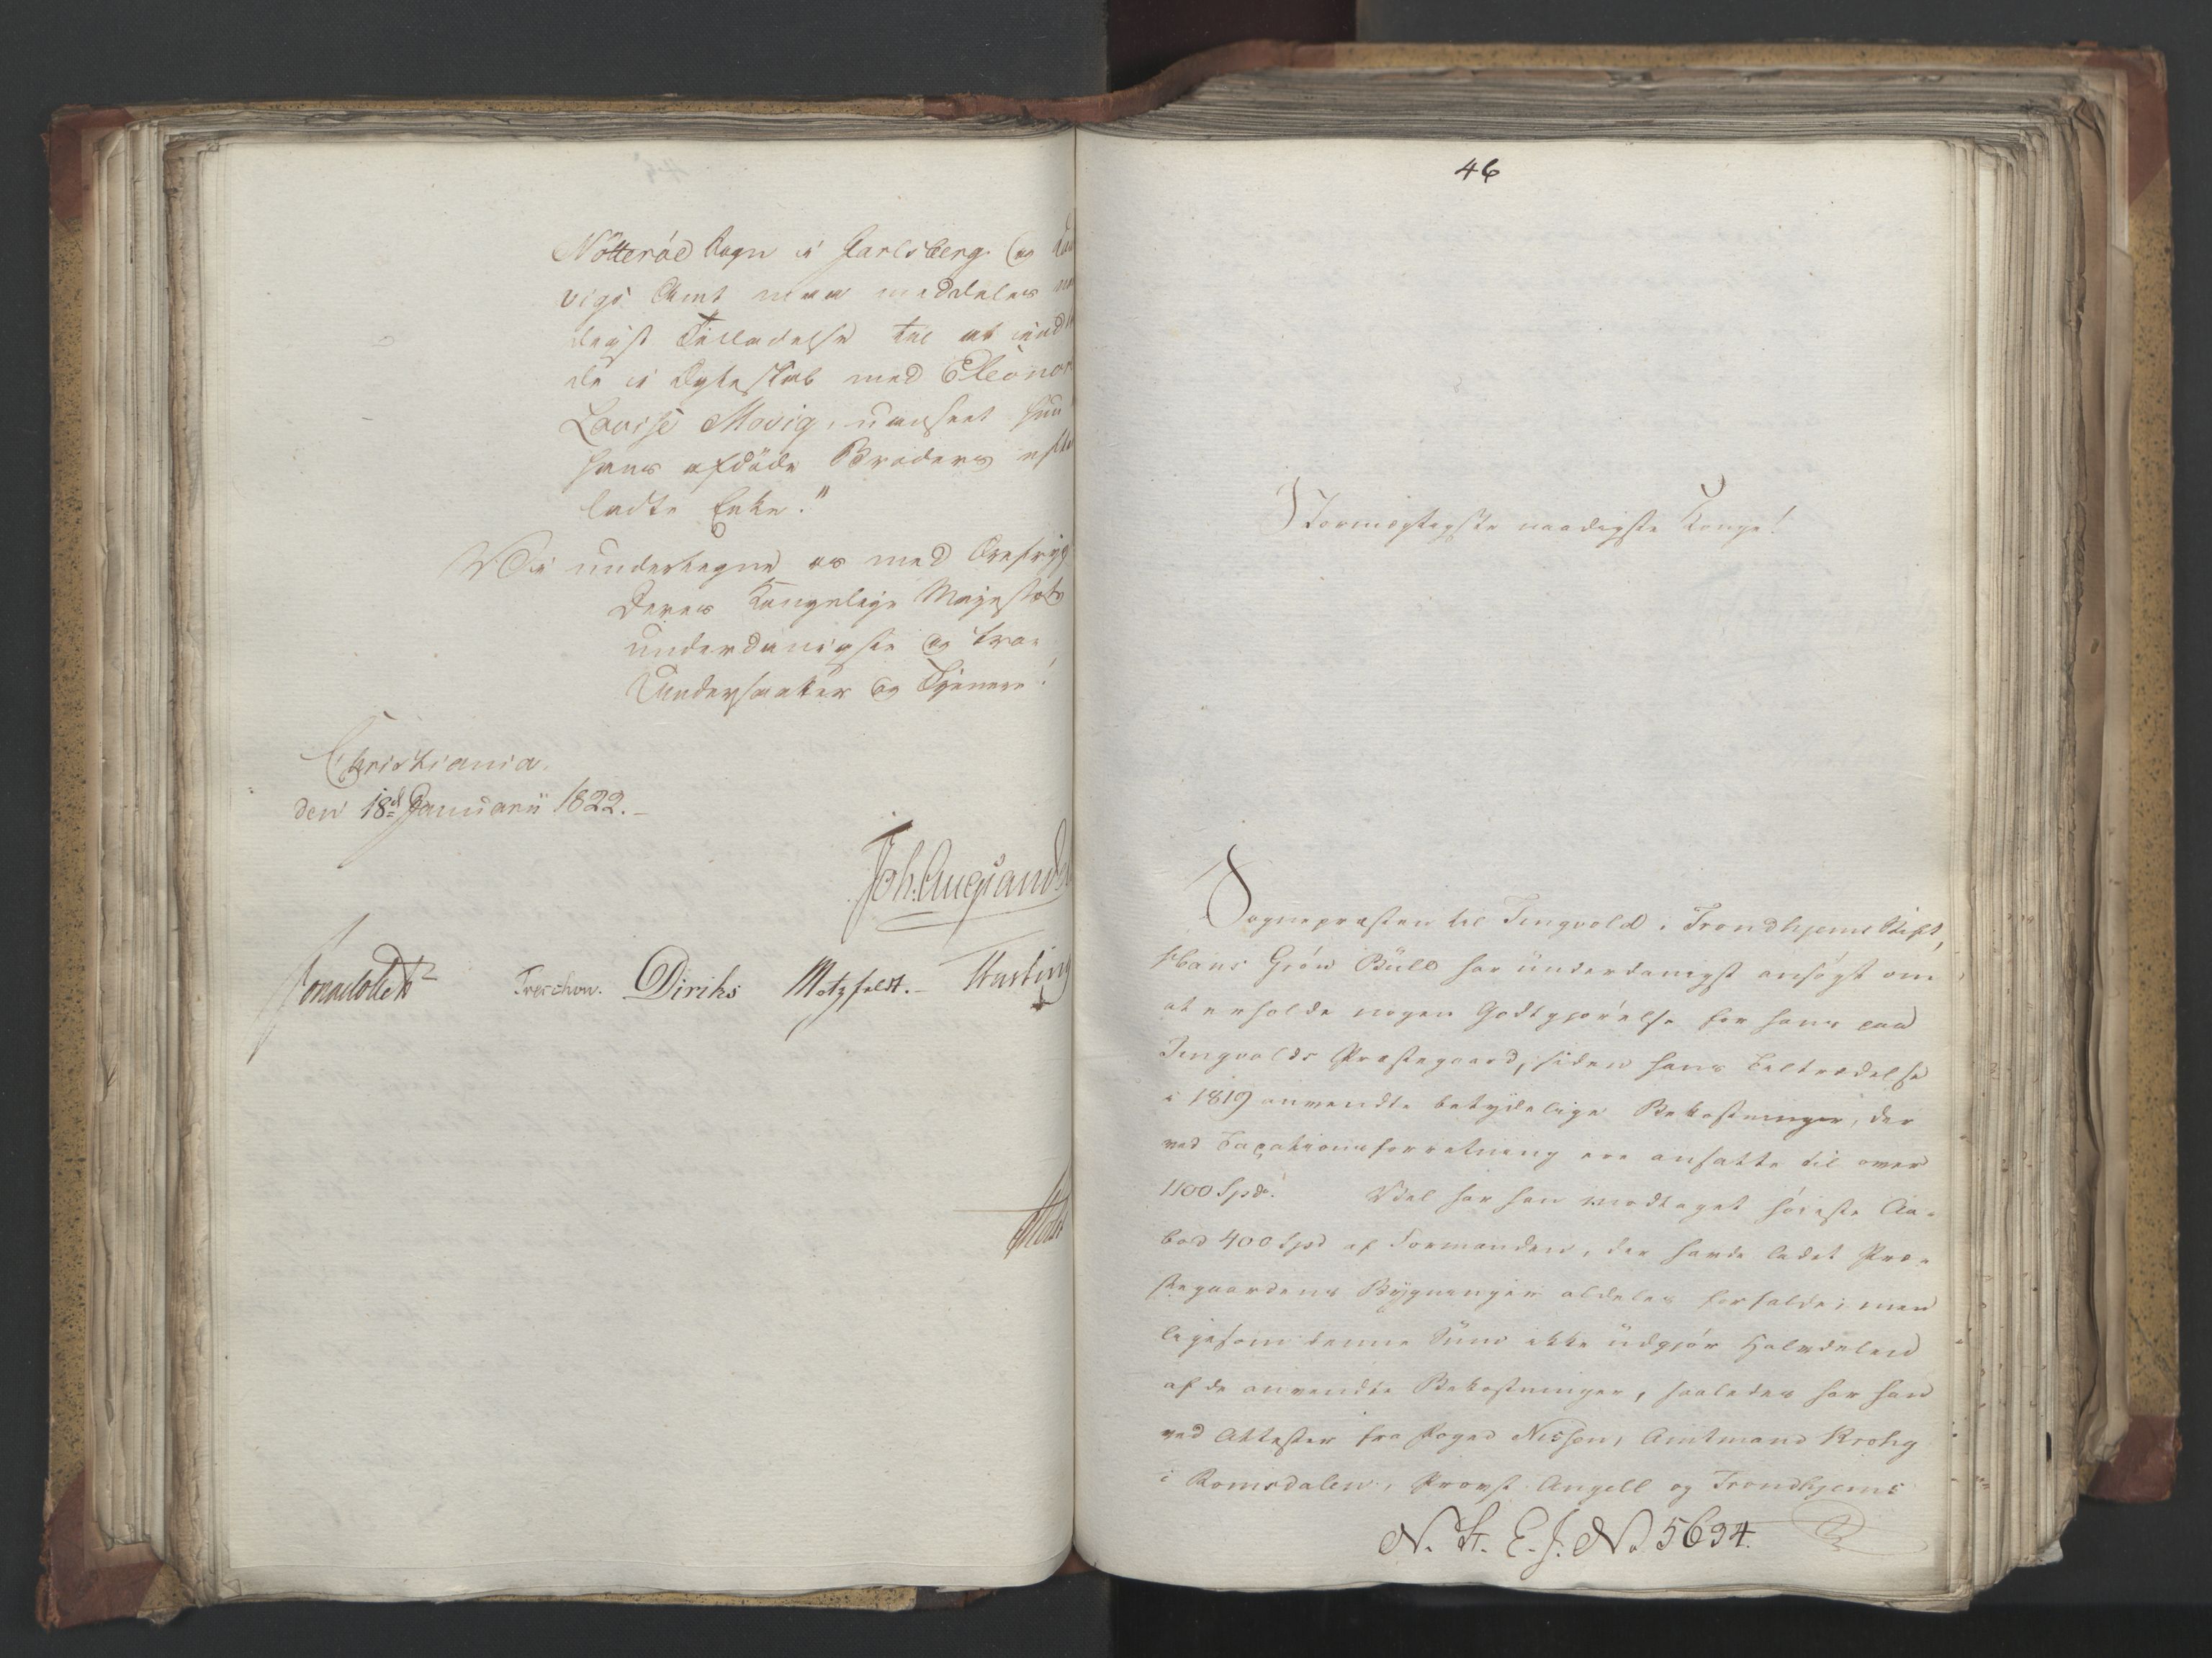 Nötteröe Sogn i Jarlsberg og Lau
vigs Amt maa meddeles naa
digst Tilladelse til at indtræ
de i Ægteskab med Eleonora
Lovise Movig, uanseet hun
hans afdöde Broders efter
ladte Enke."
Vi undertegne os med Ærefrygt
Deres Kongelige Majestæts
underdanigste og troe
Undersaatter og Tjenere!
Christiania.
den 18d Januarii 1822.-
Joh. Aug. Sandel
Sommerfeldt Treschow. Diriks Motzfeldt.- Fasting
Holst
46
Stormægtigste naadigste Konge!
Sognepræsten til Tingvold i Trondhjems Stift,
Hans Grön Büll har underdanigst ansögt om
at erholde nogen Godtgjörelse for hans paa
Tingvolds Præstegaard, siden hans Tiltrædelse
i 1819 anvendte betydelige Bekostninger, der
ved Taxationsforretning ere ansatte til over
1100 Spd. Vel har han modtaget höieste Aa-
bod 400 Spd af Formanden, der havde ladet Præ-
stegaardens Bygninger aldeles forfalde; men
ligesom denne Sum ikke udgjör Halvdelen
af de anvendte Bekostninger, saaledes har han
ved Attester fra Foged Nissen, Amtmand Krohg
i Romsdalen, Provst Angell og Trondhjems
N. St. E. J. No 5694.